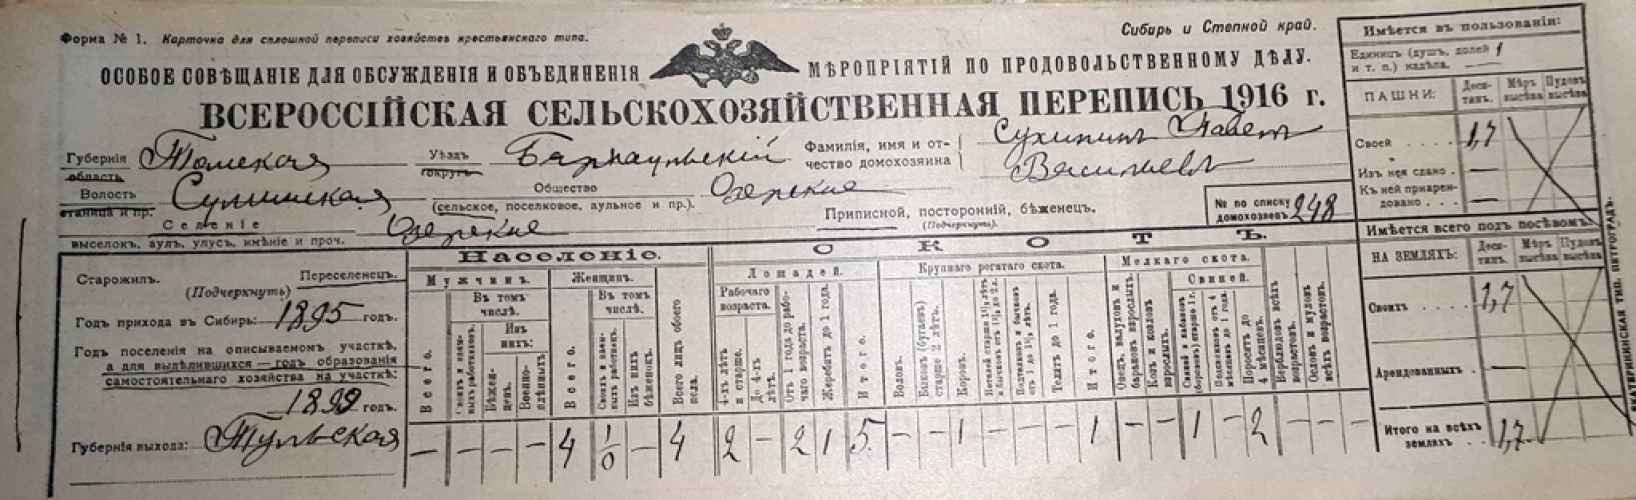 Форма № 1. Карточка для сплошной переписи хозяйствъ крестьянскаго типа.
Сибирь и Степной край.
ОСОБОЕ СОВѢЩАНІЕ ДЛЯ ОБСУЖДЕНІЯ И ОБЪЕДИНЕНІЯ МѢРОПРІЯТІЙ ПО ПРОДОВОЛЬСТВЕННОМУ ДѢЛУ.
ВСЕРОССІЙСКАЯ СЕЛЬСКОХОЗЯЙСТВЕННАЯ ПЕРЕПИСЬ 1916 г.
Губернія Томская Уѣздъ Барнаульскій Фамилія, имя и от- Павелъ
область округъ чество домохозяина Васильевъ
Волость Общество Озерское
станица и пр. (сельское, поселковое, аульное и пр.).
Селеніе Озерское Приписной, посторонній, бѣженецъ.
(Подчеркнуть)
№ по списку
домохозяевъ 248
выселокъ, аулъ, улусъ, имѣніе и проч.
Старожилъ. Переселенецъ.
(Подчеркнуть)
Годъ прихода въ Сибирь: 1895 годъ.
Годъ поселенія на описываемомъ участкѣ,
а для выдѣлившихся — годъ образованія
самостоятельнаго хозяйства на участкѣ:
годъ.
Губернія выхода: Тульская
Населеніе.
Мужчинъ. Женщинъ.
Всего.
Въ томъ числѣ.
Своихъ и наем-ныхъ работниковъ.
Изъ нихъ:
Бѣжен-цевъ.
Военно-плѣнныхъ
Всего.
Въ томъ числѣ.
Своихъ и наем-ныхъ работниц.
Изъ нихъ бѣженокъ.
Всего лицъ обоего пола.
СКОТЪ.
Лошадей.
Рабочаго возраста.
4-хъ лѣтъ и старше.
До 4-хъ лѣтъ.
Отъ 1 года до рабо-чаго возраста.
Жеребятъ до 1 года.
Итого.
Крупнаго рогатаго скота.
Воловъ.
Быковъ (бугаевъ) старше 2 лѣтъ.
Коровъ.
Нетелей старше 1½ лѣтъ и бычковъ отъ 1½ до 2 л.
Подтелковъ и бычковъ отъ 1 до 1½ лѣтъ.
Телятъ до 1 года.
Итого.
Мелкаго скота.
Овецъ, валуховъ и барановъ взрослыхъ
Козъ и козловъ взрослыхъ.
Свиней.
Свиней и кабановъ (борововъ) старше 1 г.
Подсвинковъ отъ 4 мѣсяцевъ до 1 года.
Поросятъ до 4 мѣсяцевъ.
Верблюдовъ всѣхъ возрастовъ.
Ословъ и муловъ всѣхъ возрастовъ.
— — — — 4 1/0 — 4 2 — 2 1 5 — — 1 — — — 1 — — 1 — 2 — —
Имѣется въ пользованіи:
Единицъ (душъ, долей 1
и т. п.) надѣла. —
ПАШНИ: Деся-тинъ. Мѣръ высѣва Пудовъ высѣва
Своей . . . . 1,7
Изъ нея сдано . —
Къ ней приарен-
довано . . . —
Имѣется всего подъ посѣвомъ
НА ЗЕМЛЯХЪ: Деся-тинъ. Мѣръ высѣва Пудовъ высѣва
Своихъ . . . . 1,7
Арендованныхъ . —
Итого на всѣхъ
земляхъ . . 1,7
ЕКАТЕРИНИНСКАЯ ТИП. ПЕТРОГРАДЪ.